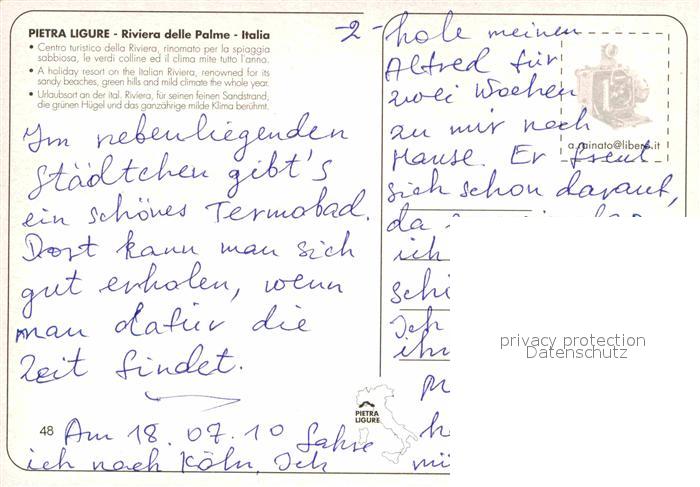 PIETRA LIGURE - Riviera delle Palme - Italia
• Centro turistico della Riviera, rinomato per la spiaggia
sabbiosa, le verdi colline ed il clima mite tutto l'anno.
• A holiday resort on the Italian Riviera, renowned for its
sandy beaches, green hills and mild climate the whole year.
• Urlaubsort an der ital. Riviera, für seinen feinen Sandstrand,
die grünen Hügel und das ganzjährige milde Klima berühmt.
Im nebenliegenden
Städtchen gibt's
ein schönes Termobad.
Dort kann man sich
gut erholen, wenn
man dafür die
Zeit findet.
48 Am 18.07.10 fahre
ich nach Köln. Ich
-2-
hole meinen
Alfred für
zwei Wochen
zu mir nach
Hause. Er freut
sich schon darauf,
da
ich
schi
Ich
ihm
h
mü
a.minato@libero.it
PIETRA
LIGURE
privacy protection
Datenschutz